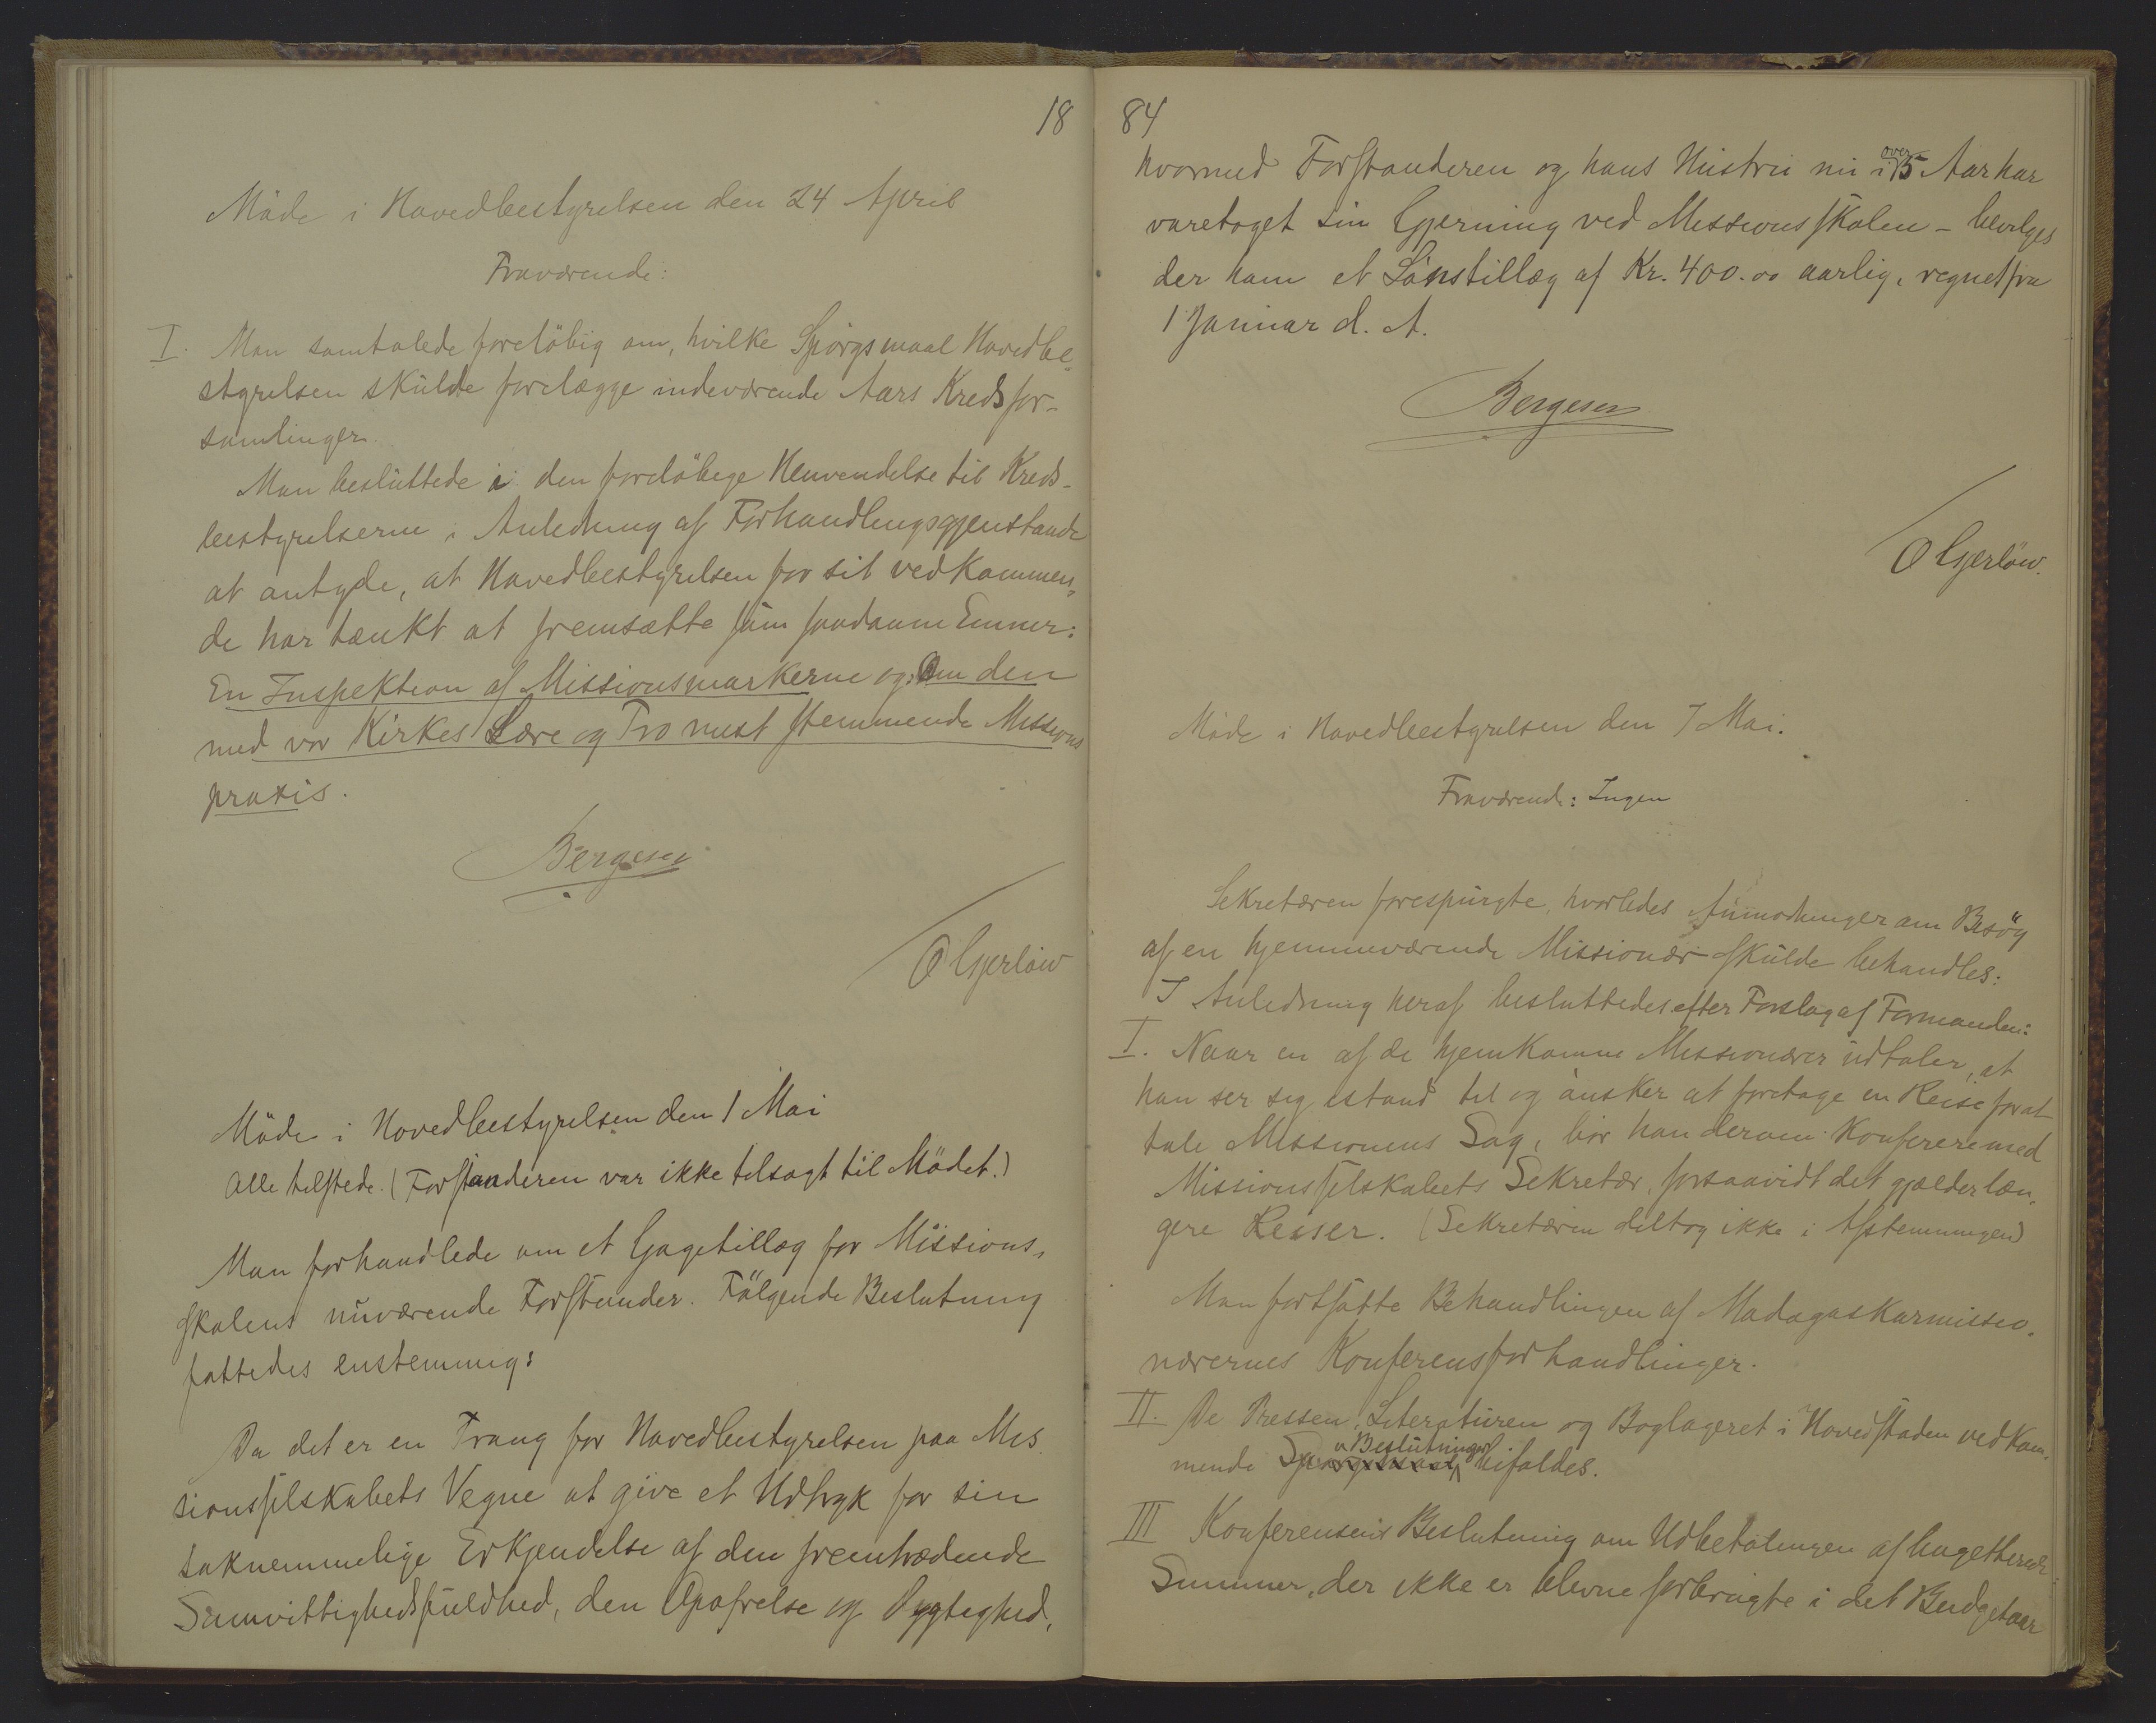 18
Möde i Hovedbestyrelsen den 24 April
Fraværende:
I. Man samtalede foreløbig om, hvilke Spörgsmaal Hovedbe-
styrelsen skulde forelægge indeværende Aars Kredsfor-
samlinger
Man besluttede i den foreløbige Henvendelse til Kreds-
bestyrelserne i Anledning af Forhandlingsgjenstande
at antyde, at Hovedbestyrelsen for sit vedkommen-
de har tænkt at fremsætte som saadanne Emner:
En Inspektion af Missionsmarkerne og: Om den
med vor Kirkes Lære og Tro mest stemmende Missions
praxis.
Bergesen
O Gjerløw
Möde i Hovedbestyrelsen den 1 Mai
Alle tilstede. (Forstanderen var ikke tilsagt til Mödet.)
Man forhandlede om et Gagetillæg for Missions-
skolens nuværende Forstander. Fölgende Beslutning
fattedes enstemmig:
Da det er en Trang for Hovedbestyrelsen paa Mis
sionsselskabets Vegne at give et Udtryk for sin
taknemmelige Erkjendelse af den fremtrædende
Samvittighedsfuldhed, den Opofrelse og Dygtighed,
84
hvormed Forstanderen og hans Hustru nu i over 15 Aar har
varetaget sin Gjerning ved Missionsskolen - bevilges
der ham et Lönstillæg af Kr. 400.00 aarlig, regnet fra
1 Januar d. A.
Bergesen
O Gjerløw.
Möde i Hovedbestyrelsen den 7 Mai.
Fraværende: Ingen
Sekretæren forespurgte, hvorledes Anmodninger om Besög
af en hjemmeværende Missionær skulde behandles:
I Anledning heraf besluttedes efter Forslag af Formanden:
I. Naar en af de hjemkomne Missionærer udtaler, at
han ser sig istand til og ønsker at foretage en Reise for at
tale Missionens Sag, bör han derom konferere med
Missionsselskabets Sekretær, forsaavidt det gjælder læn-
gere Reiser. (Sekretæren deltog ikke i Afstemningen)
Man fortsatte Behandlingen af Madagaskarmissio-
nærernes Konferensforhandlinger.
II. De Pressen, Literaturen og Boglageret i Hovedstaden vedkom-
mende Spørgsmaal Beslutninger bifaldes.
III Konferensens Beslutning om Udbetalingen af budgetterede
Summer, der ikke er blevne forbrugte i det Budgetaar